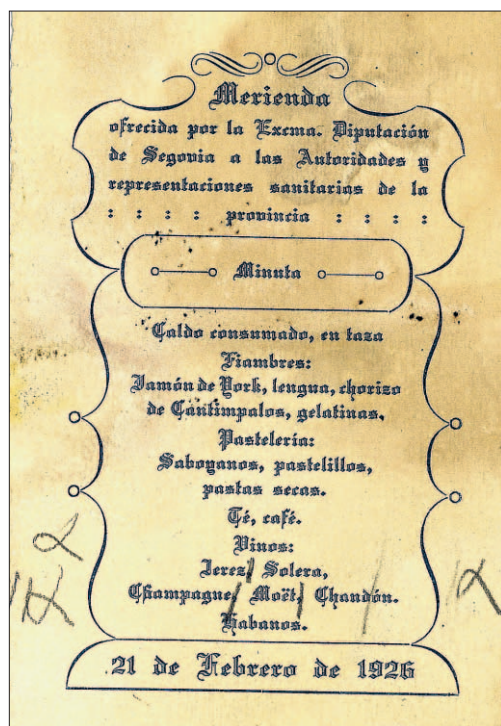 Merienda
ofrecida por la Excma. Diputación
de Segovia a las Autoridades y
representaciones sanitarias de la
: : : : provincia : : : :
Minuta
Caldo consumado, en taza
Fiambres:
Jamón de York, lengua, chorizo
de Cantimpalos, gelatinas.
Pastelería:
Saboyanos, pastelillos,
pastas secas.
Té, café.
Vinos:
Jerez, Solera,
Champagne, Moët, Chandón.
Habanos.
21 de Febrero de 1926